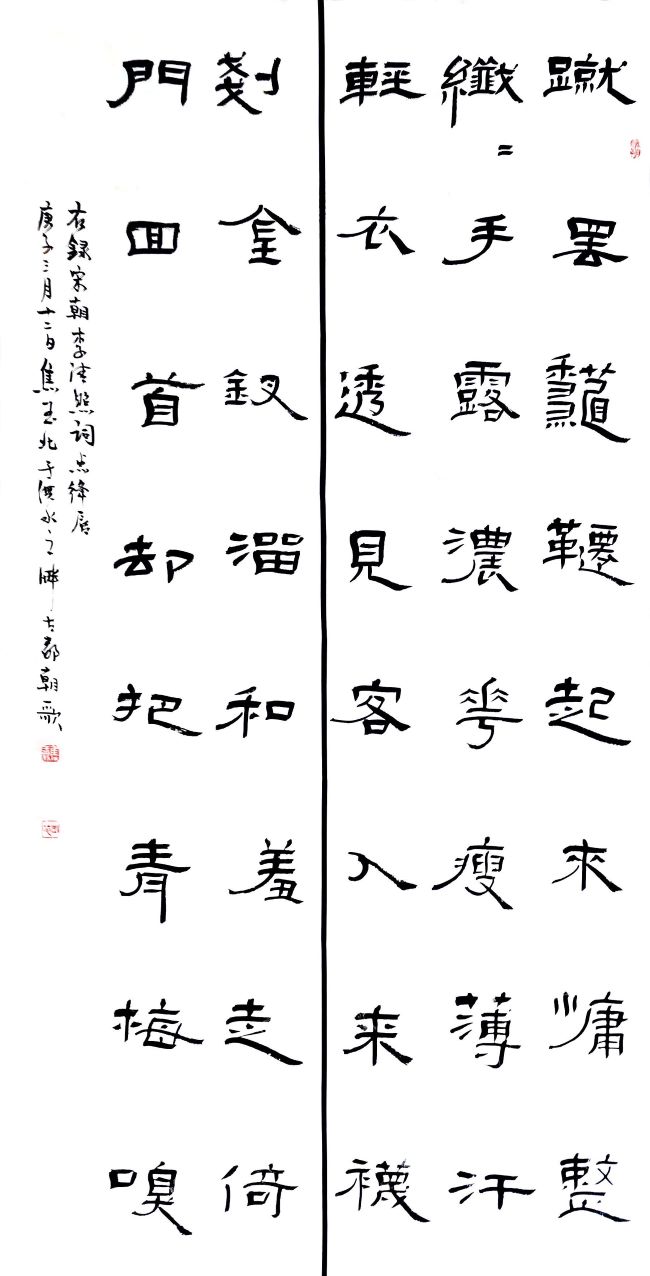 蹴罷鞦韆起來慵整
纖〻手露濃華瘦薄汗
輕衣透見客入来襪
剗金釵溜和羞走倚
門回首却把青梅嗅
右録宋朝李清照詞点絳唇
庚子三月十二日焦玉北于淇水之畔古都朝歌